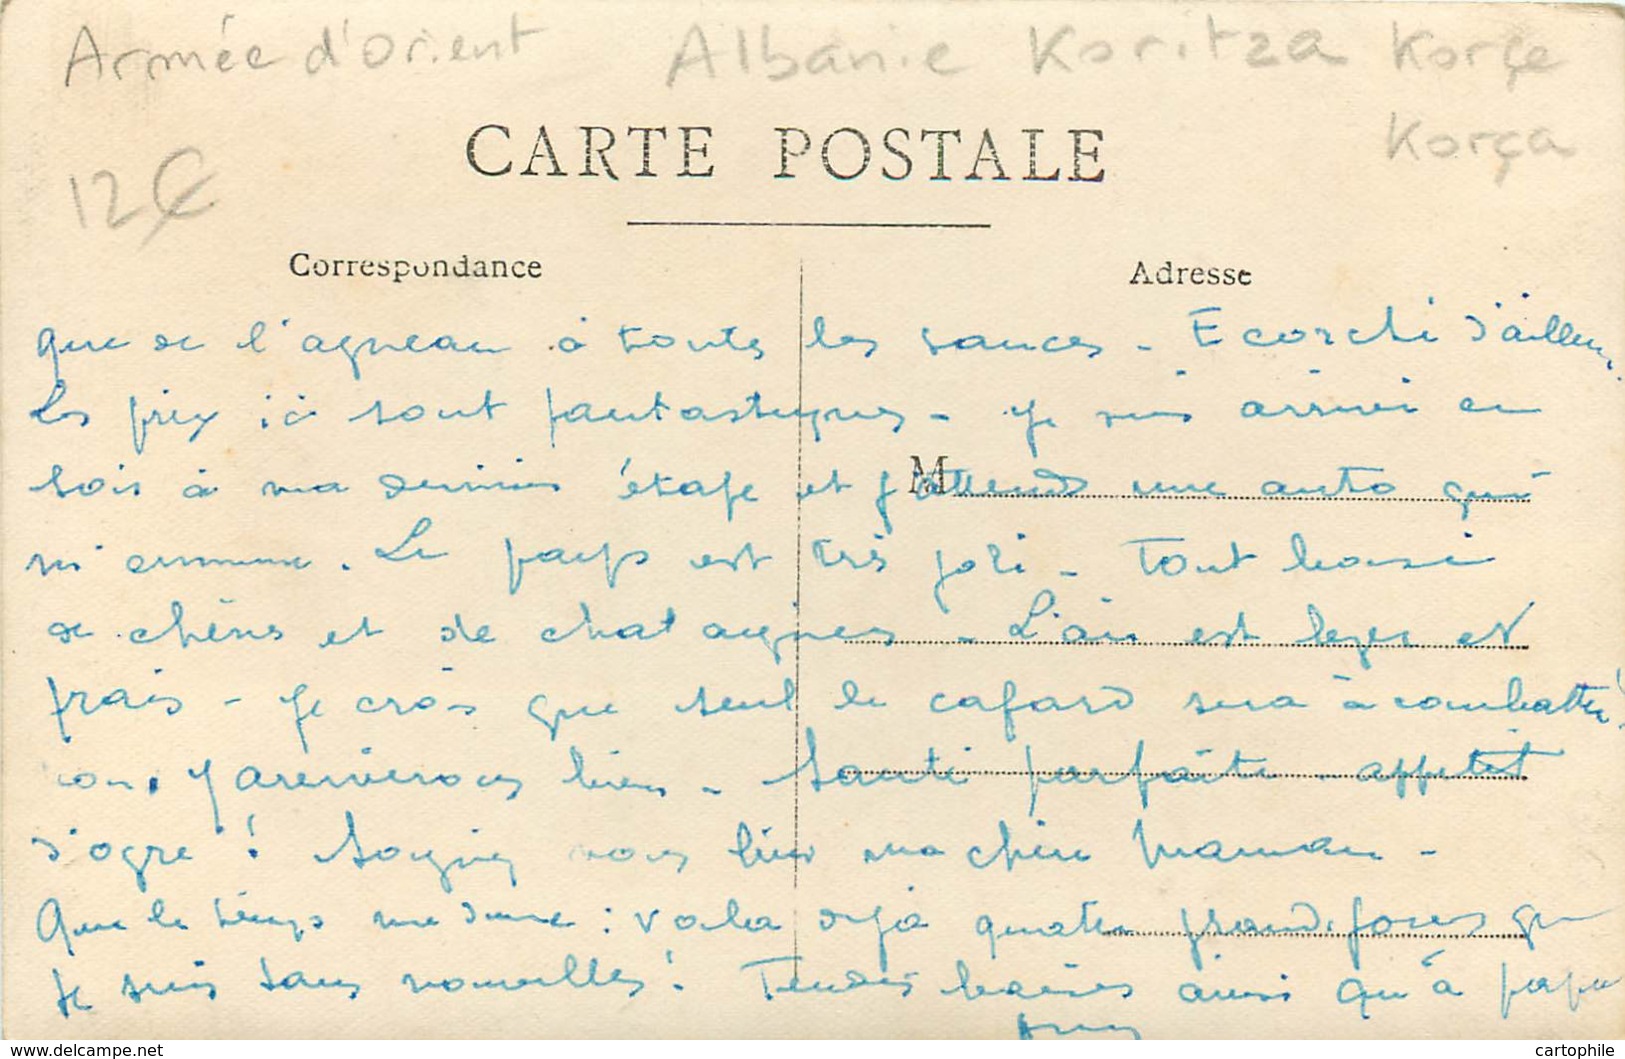 Armée d'Orient Albanie Koritza Korçe
Korça
12€
CARTE POSTALE
Correspondance
Adresse
que de l'agneau à toutes les sauces - Ecorché d'ailleurs
Les prix ici sont fantastiques - Je suis arrivé ce
soir à ma dernière étape et j'attends une auto qui
m'emmene. Le pays est très joli - Tout boisé
de chênes et de chataigners - L'air est leger et
frais - Je crois que seul le cafard sera à combattre !
nous y arriverons bien - Santé parfaite - appetit
d'ogre ! Soignez vous bien ma chère Maman -
Que le temps me dure : voila déjà quatre grands jours que
je suis sans nouvelles ! Tendres baisers ainsi qu'à papa
M
www.cartophile.fr
cartophile